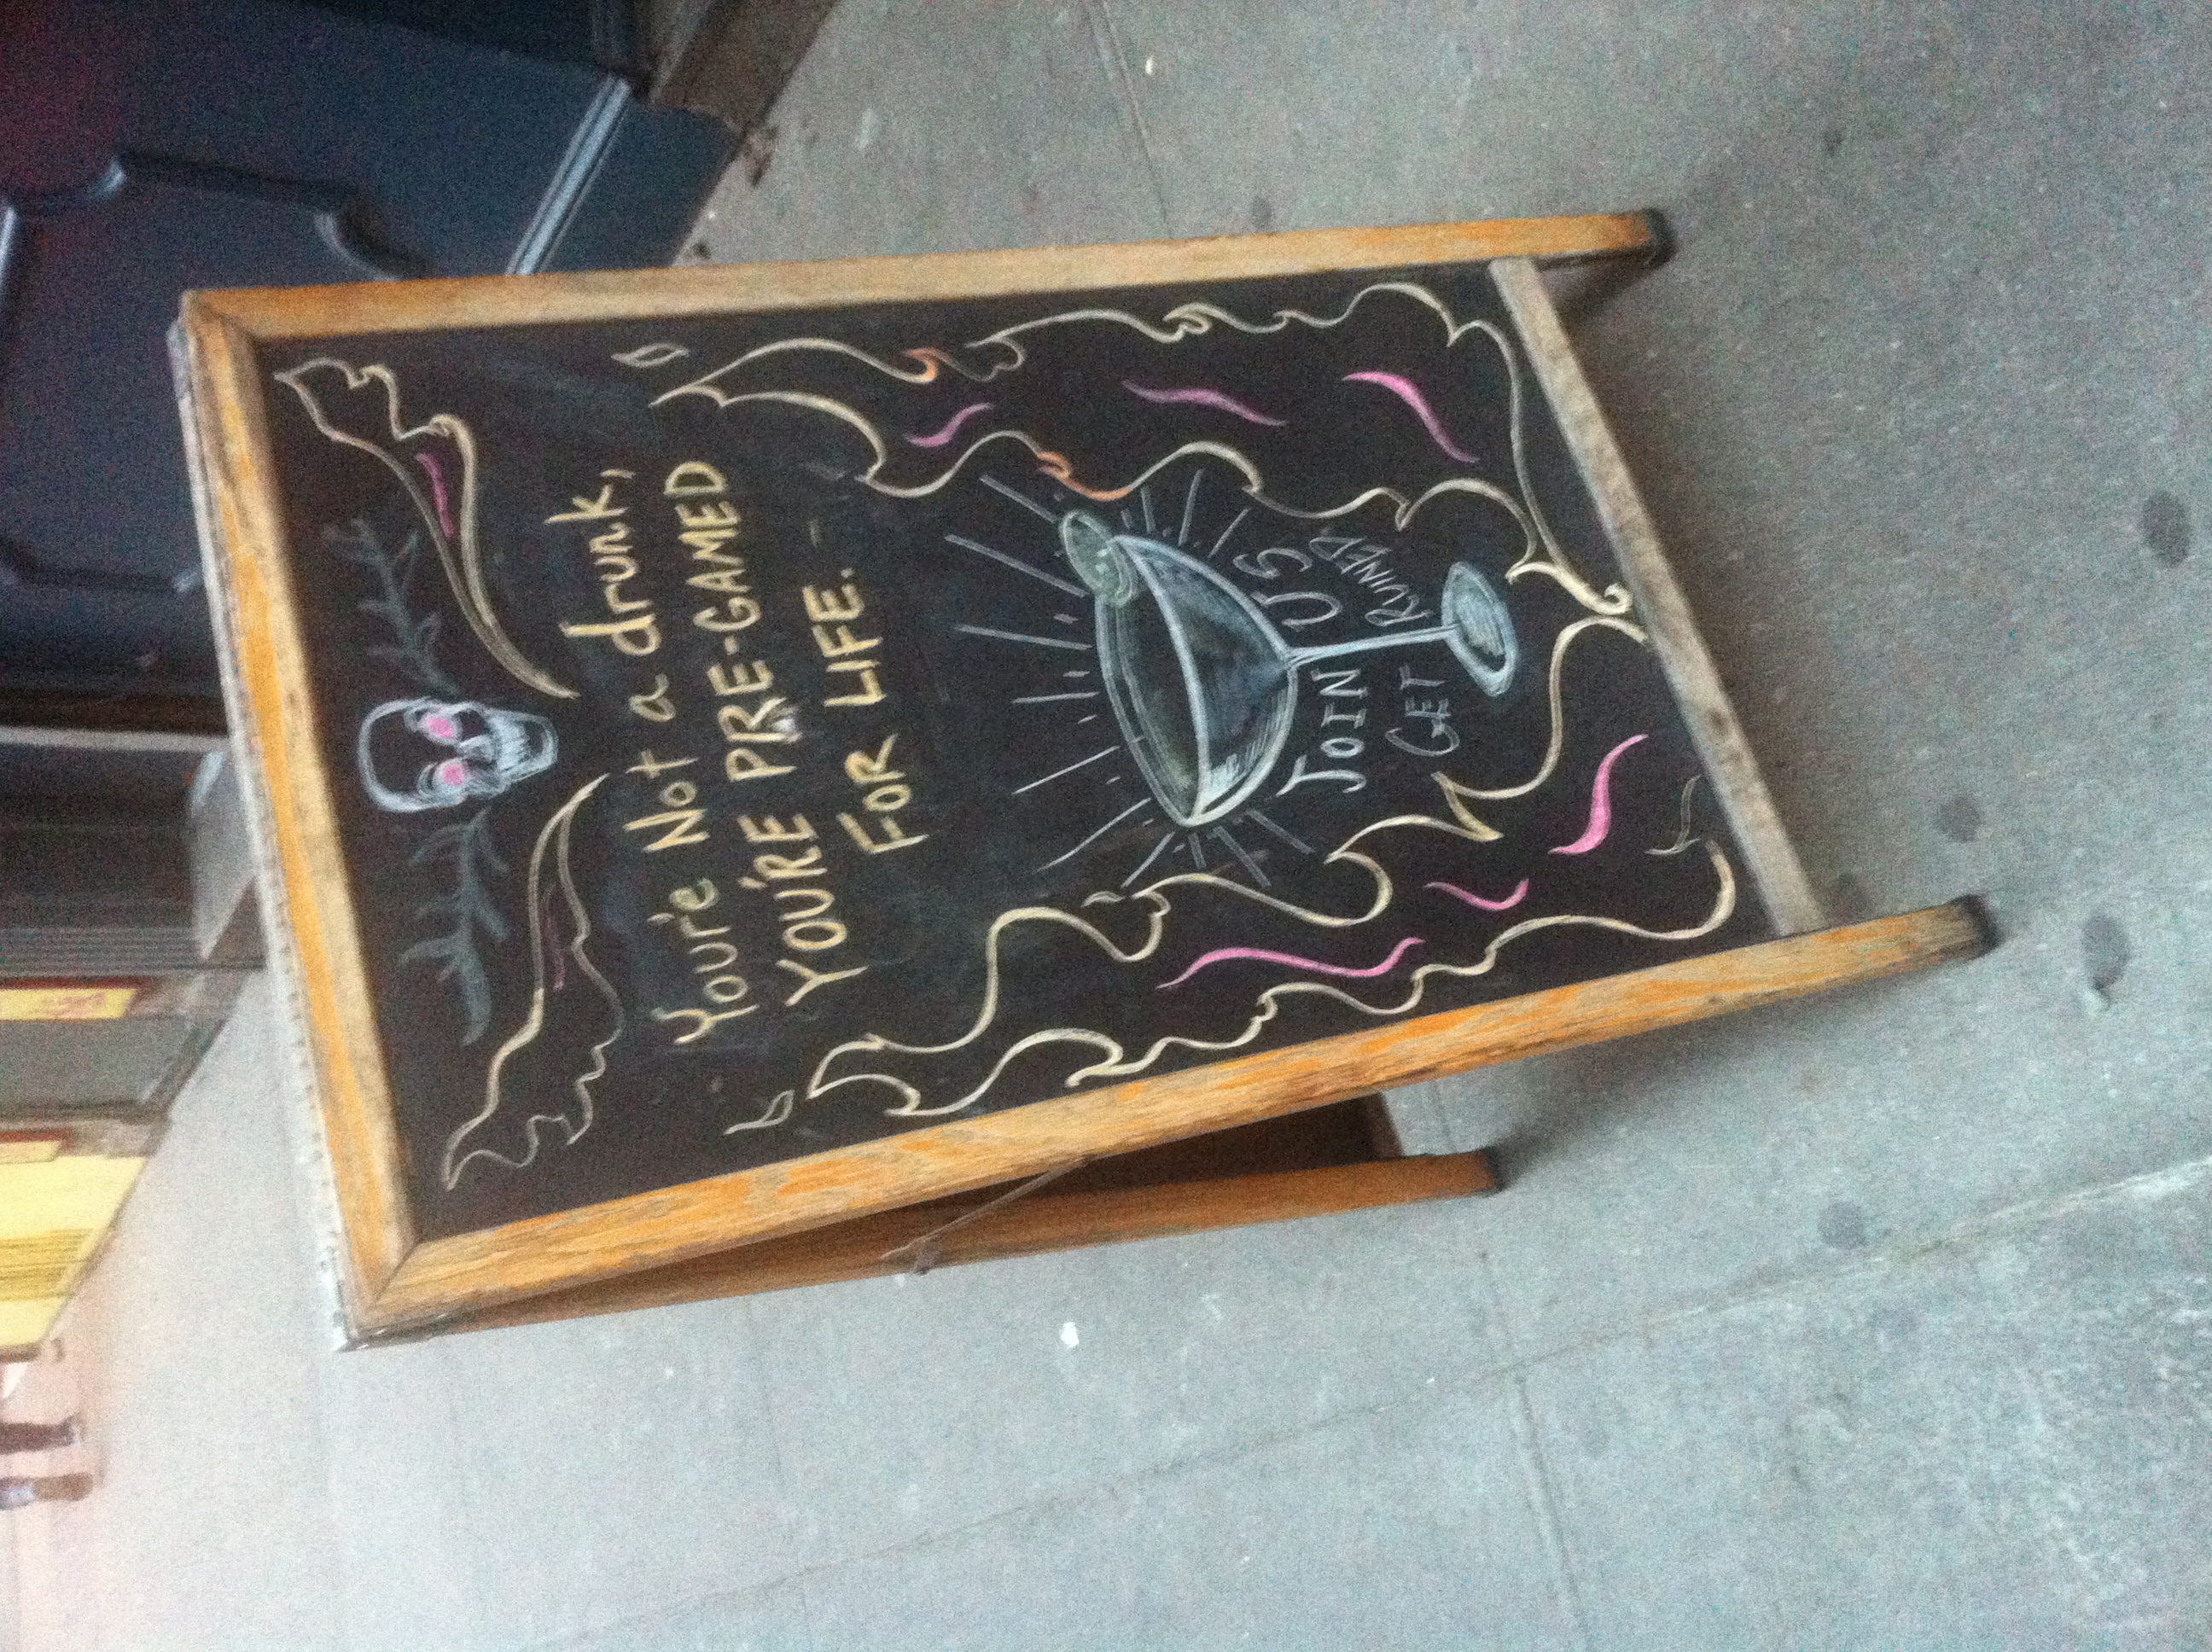 You're Not a drunk,
YOU'RE PRE-GAMED
FOR LIFE.
JOIN US
GET RUINED